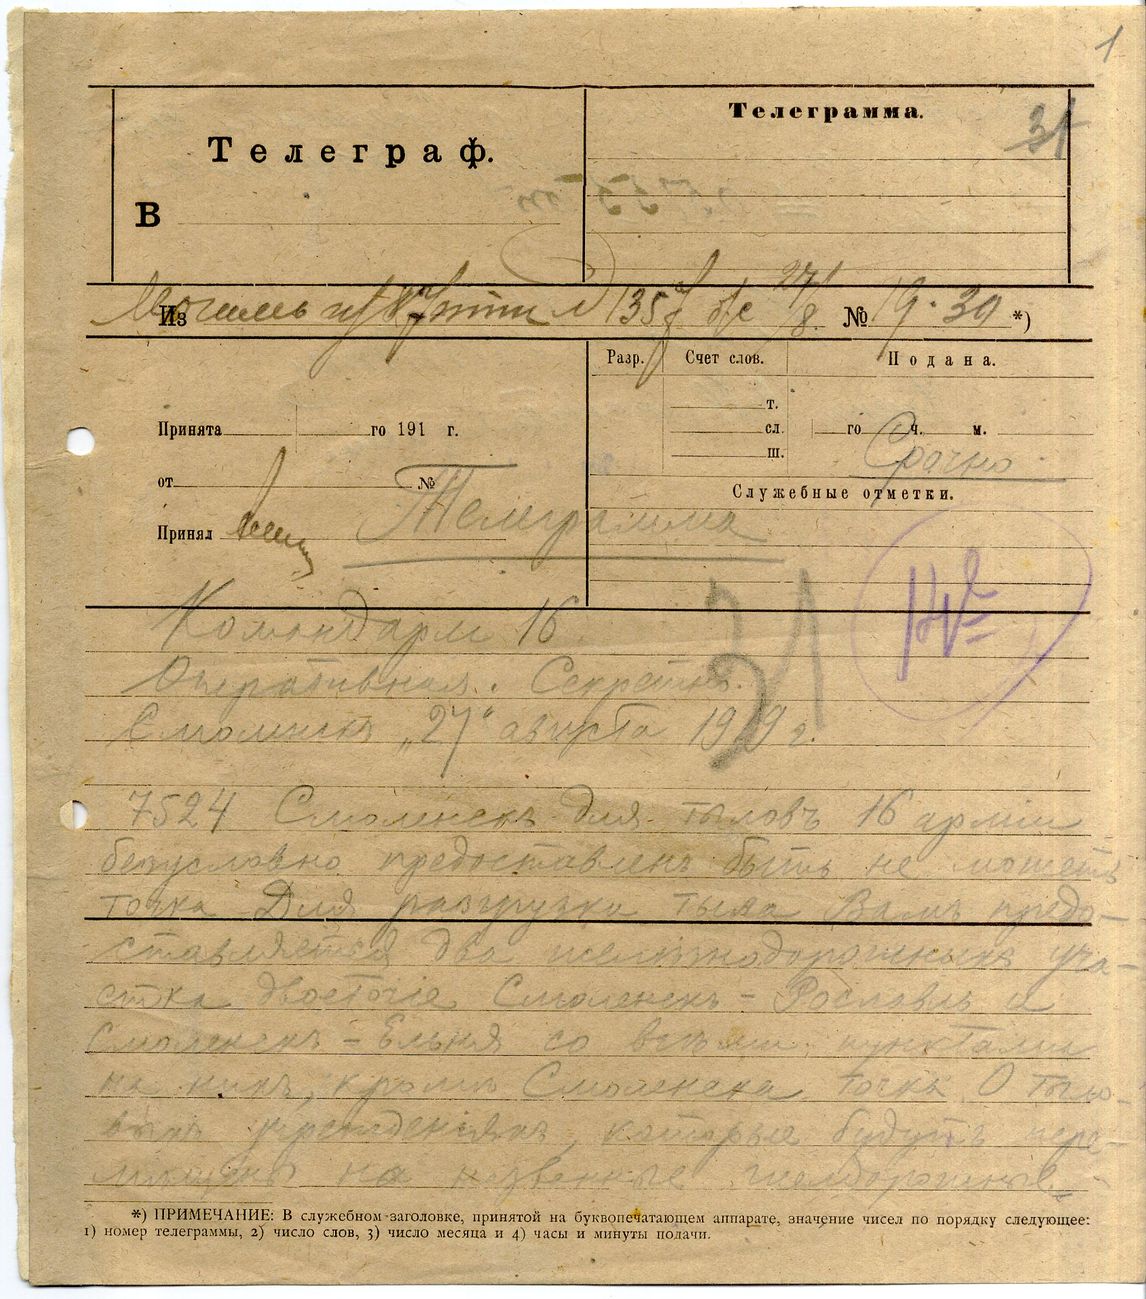 1
Телеграмма.
31
Телеграф.
В
Из 27/8 № 19.30 *)
Разр. Счет слов. Подана.
т.
Принята го 191 г. сл. го ч. м.
ш. Срочно.
от № Служебные отметки.
Принял Телеграмма
31
Командарм 16
Оперативная. Секретно.
Смоленск „27" августа 1919 г.
7524 Смоленскъ для тыловъ 16 арміи
безусловно предоставленъ быть не можетъ
точка Для разгрузки тыла Вамъ предо-
ставляется два железнодорожныхъ уча-
стка двоеточіе Смоленскъ - Рославль и
Смоленскъ = Ельня со всѣми пунктами
на нихъ, кромѣ Смоленска точка О тыло-
выхъ учрежденіяхъ, которые будутъ пере-
мѣщены на названные желдорожные
*) ПРИМЕЧАНИЕ: В служебном заголовке, принятой на буквопечатающем аппарате, значение чисел по порядку следующее:
1) номер телеграммы, 2) число слов, 3) число месяца и 4) часы и минуты подачи.